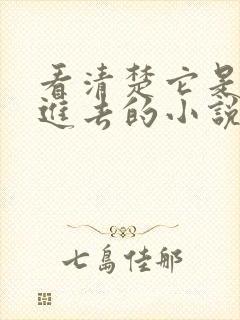 看清楚它是
進去的小說
七島佳那